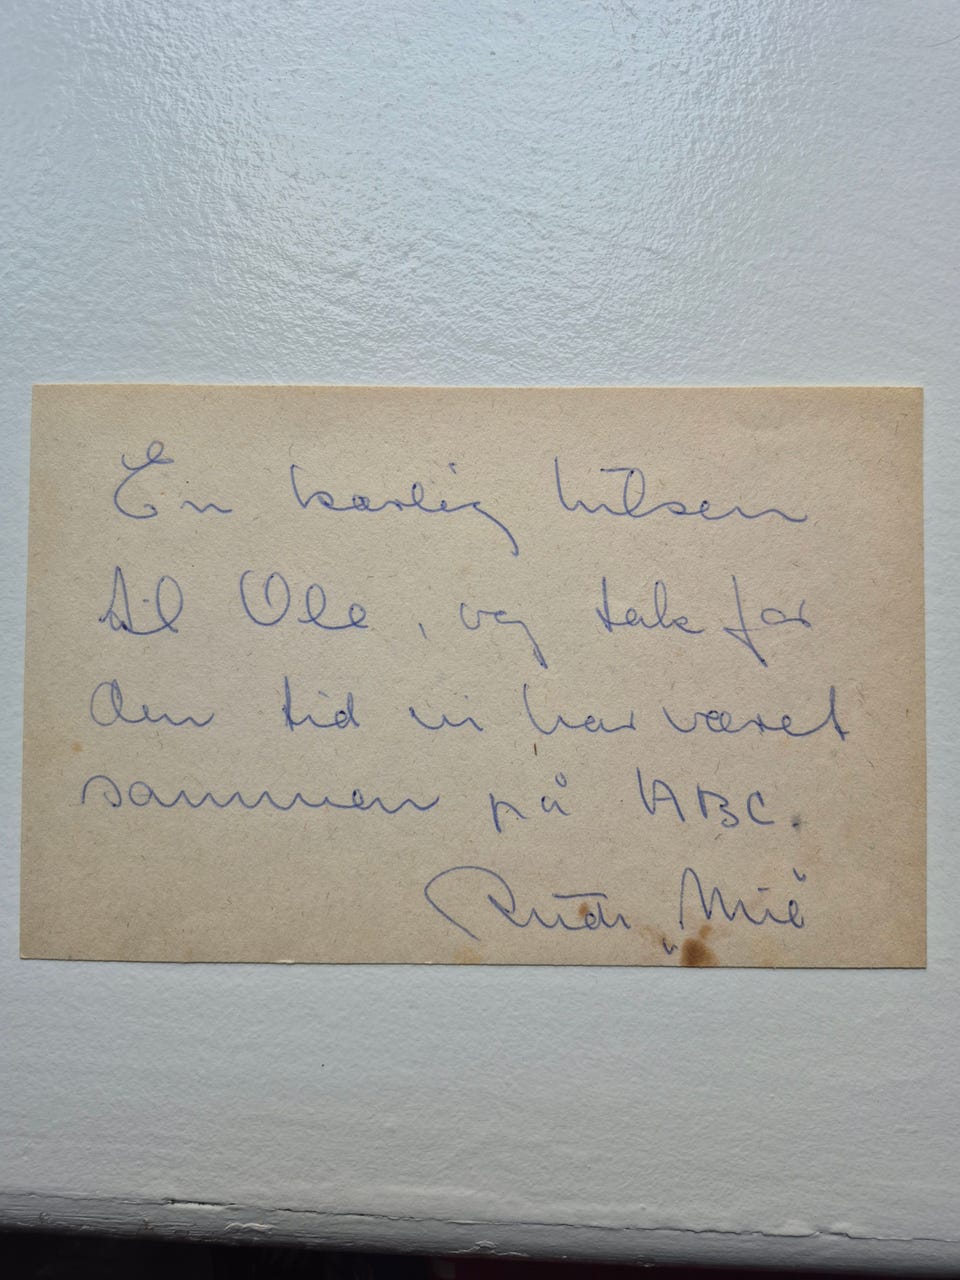 En kærlig hilsen
til Ole, og tak for
den tid vi har været
sammen på ABC.
Rudi „Mie"